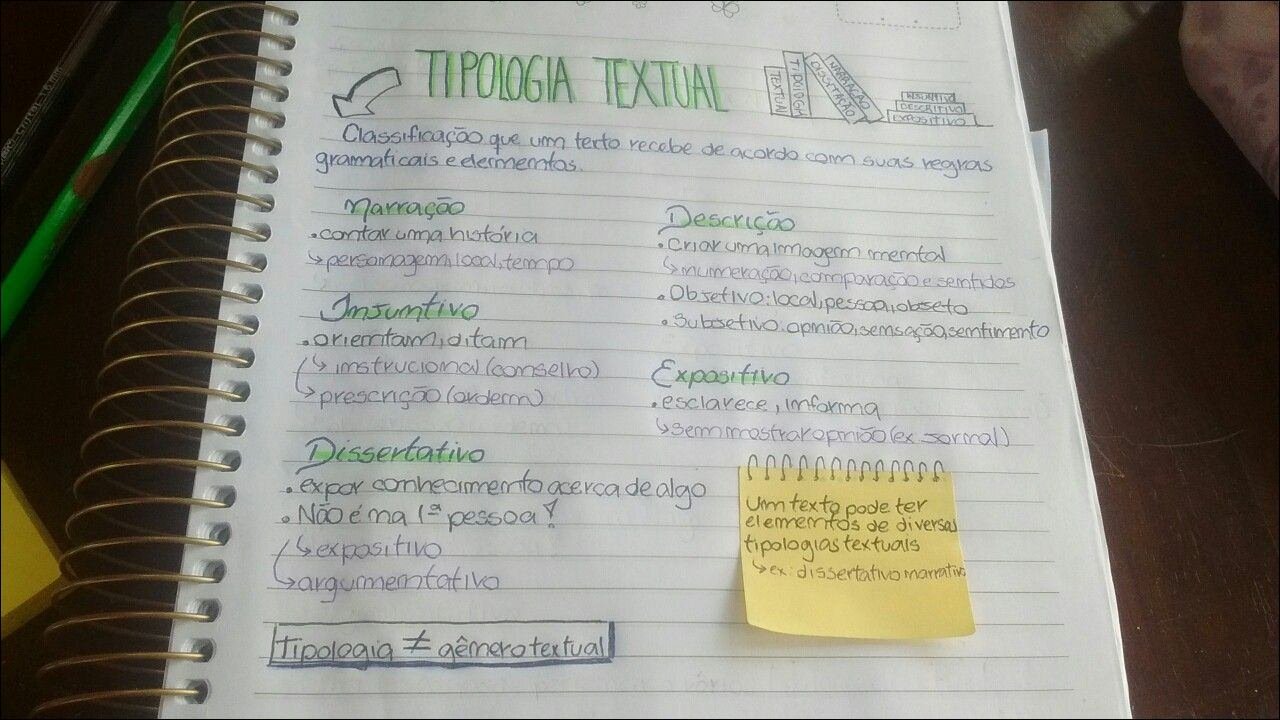 TIPOLOGIA TEXTUAL
TEXTUAL
TIPOLOGIA
NARRAÇÃO
DISSERTAÇÃO
INJUNTIVO
DESCRITIVO
EXPOSITIVO
Classificação que um texto recebe de acordo com suas regras
gramaticais e elementos.
Narração
• contar uma história
↳ personagem, local, tempo
Injuntivo
• orientam, ditam
↳ instrucional (conselho)
↳ prescrição (ordem)
Dissertativo
• expor conhecimento acerca de algo
• Não é na 1ª pessoa!
↳ expositivo
↳ argumentativo
Tipologia ≠ gênero textual
Descrição
• criar uma imagem mental
↳ numeração, comparação e sentidos
• Objetivo: local, pessoa, objeto
• Subjetivo: opnião, sensação, sentimento
Expositivo
• esclarece, informa
↳ sem mostrar opnião (ex. jornal)
Um texto pode ter
elementos de diversas
tipologias textuais
↳ ex: dissertativo narrativo